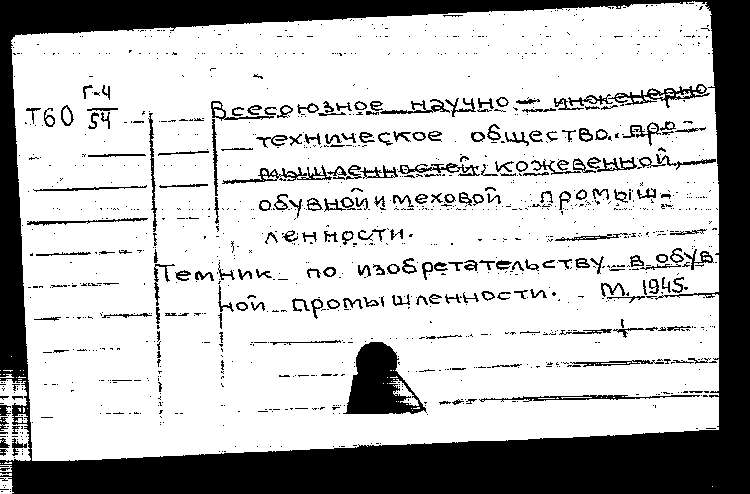 Г-4
Т60 54
Всесоюзное научно - инженерно
техническое общество про-
мышленностей, кожевенной,
обувной и меховой промыш-
ленности.
Темник по изобретательству в обув-
ной промышленности. М., 1945.